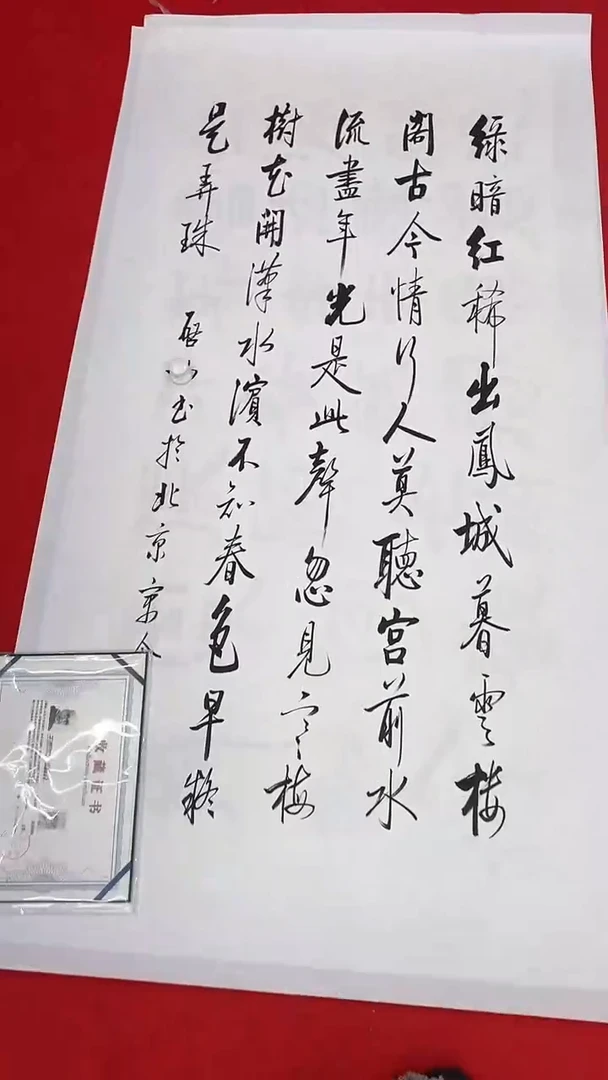 綠暗紅稀出鳳城暮雲楼
閣古今情行人莫聽宮前水
流盡年光是此聲忽見寒梅
樹花開漢水濱不知春色早疑
是弄珠
啓 书於北京
收藏证书